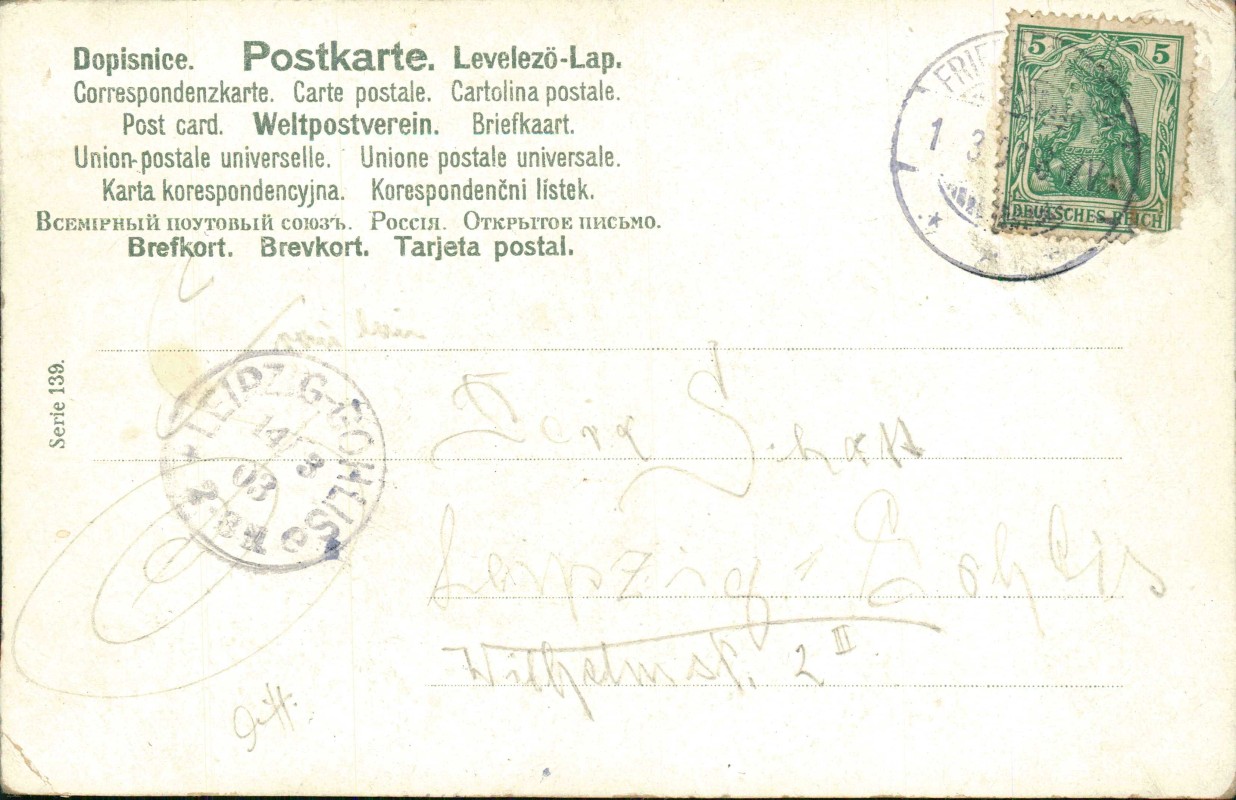 Dopisnice. Postkarte. Levelezö-Lap.
Correspondenzkarte. Carte postale. Cartolina postale.
Post card. Weltpostverein. Briefkaart.
Union-postale universelle. Unione postale universale.
Karta korespondencyjna. Korespondenčni lístek.
Всемірный поутовый союзъ. Россія. Открытое письмо.
Brefkort. Brevkort. Tarjeta postal.
5 5
DEUTSCHES REICH
Serie 139.
LEIPZIG-GOHLIS
14 3
03
Leipzig-Gohlis
Wilhelmstr. 2 III.